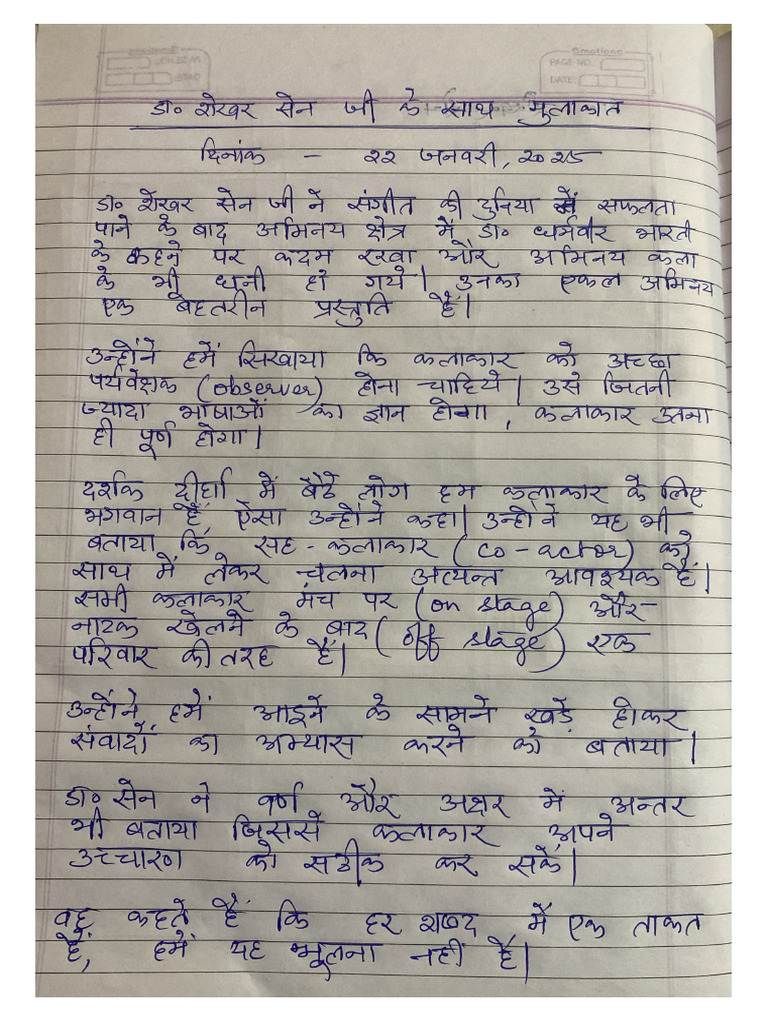 Emotions
PAGE NO.
DATE:
डा० शेखर सेन जी के साथ मुलाकात
दिनांक – २२ जनवरी, २०२५
डॉ० शेखर सेन जी ने संगीत की दुनिया में सफलता
पाने के बाद अभिनय क्षेत्र में डा० धर्मवीर भारती
के कहने पर कदम रखा और अभिनय कला
के भी धनी हो गये। उनका एकल अभिनय
एक बेहतरीन प्रस्तुति है।
उन्होंने हमें सिखाया कि कलाकार को अच्छा
पर्यवेक्षक (observer) होना चाहिये। उसे जितनी
ज्यादा भाषाओं का ज्ञान होगा, कलाकार उतना
ही पूर्ण होगा।
दर्शक दीर्घा में बैठे लोग हम कलाकार के लिए
भगवान हैं, ऐसा उन्होंने कहा। उन्होंने यह भी
बताया कि सह-कलाकार (co-actor) को
साथ में लेकर चलना अत्यन्त आवश्यक है।
सभी कलाकार मंच पर (on stage) और
नाटक खेलने के बाद (off stage) एक
परिवार की तरह हैं।
उन्होंने हमें आइने के सामने खड़े होकर
संवादों का अभ्यास करने को बताया।
डॉ० सेन ने वर्ण और अक्षर में अन्तर
भी बताया जिससे कलाकार अपने
उच्चारण को सटीक कर सकें।
वह कहते हैं कि हर शब्द में एक ताकत
है, हमें यह भूलना नहीं है।